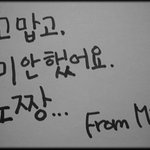 고맙고,
미안했어요.
ㅍ짱... From M